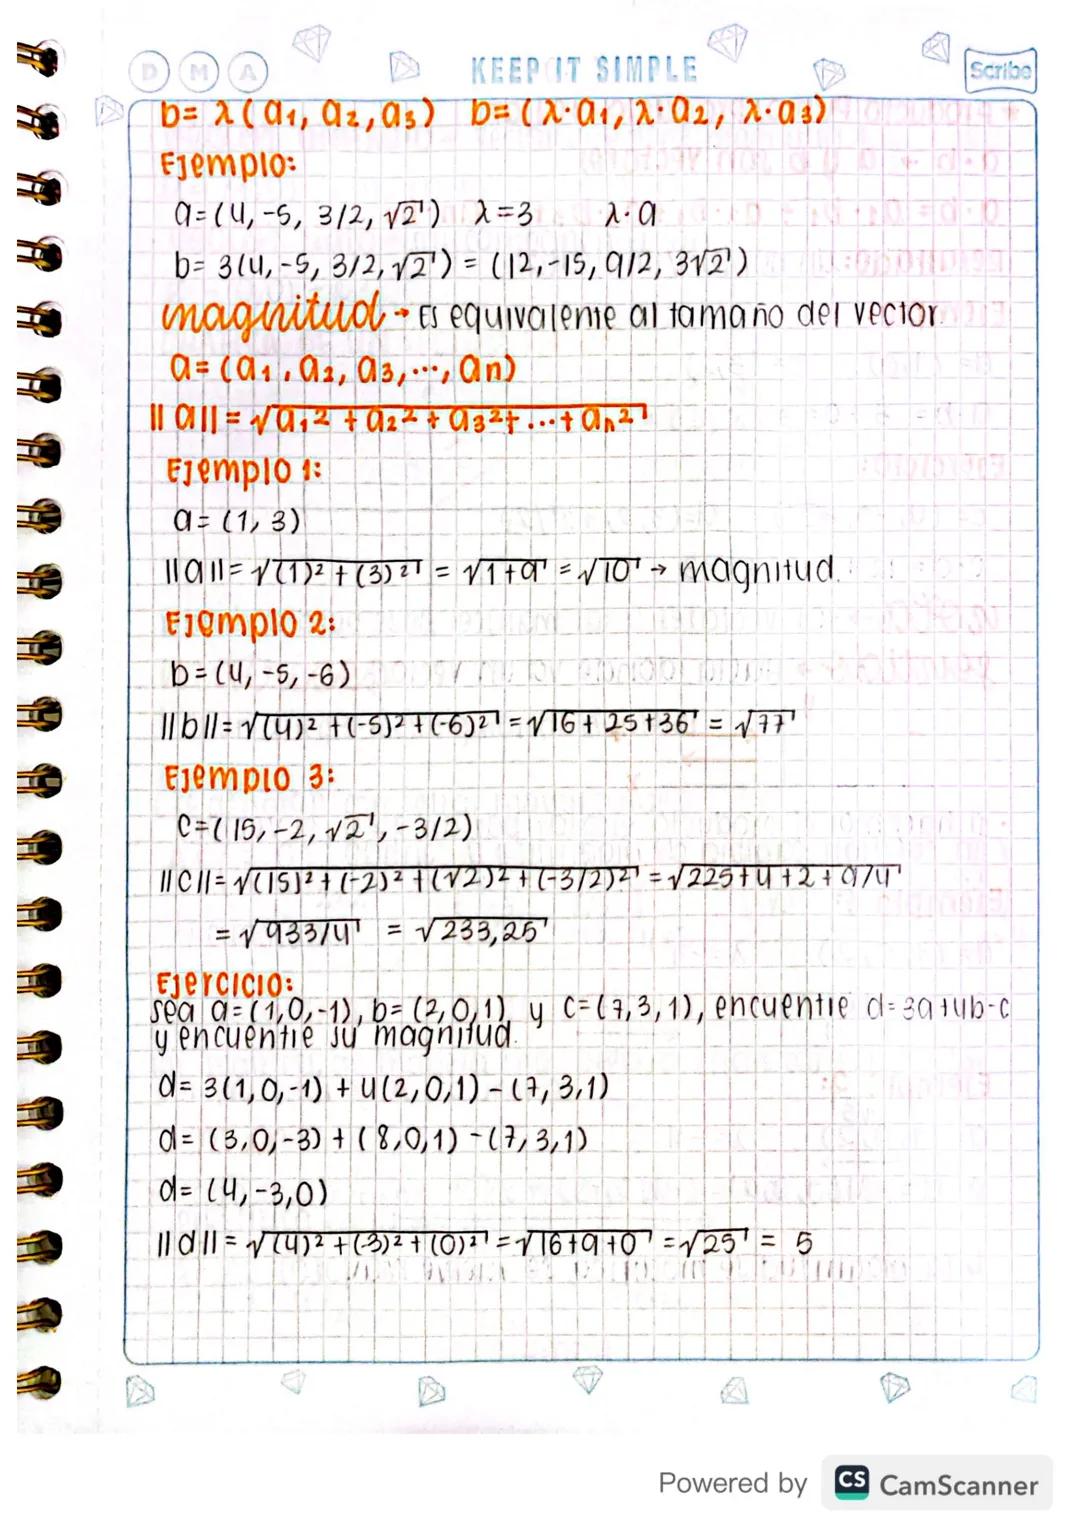 D M A KEEP IT SIMPLE Scribe
b= λ(a₁, a₂, a₃) b= (λ·a₁, λ·a₂, λ·a₃)
Ejemplo:
a=(4, -5, 3/2, √2) λ=3 λ·a
b= 3(4, -5, 3/2, √2) = (12, -15, 9/2, 3√2)
magnitud → Es equivalente al tamaño del vector.
a= (a₁, a₂, a₃, ..., an)
||a|| = √a₁² + a₂² + a₃² + ... + an²
Ejemplo 1:
a= (1, 3)
||a||= √(1)² + (3)² = √1+9 = √10 → magnitud.
Ejemplo 2:
b= (4, -5, -6)
||b||= √(4)² + (-5)² + (-6)² = √16 + 25 + 36 = √77
Ejemplo 3:
c=(15, -2, √2, -3/2)
||c||= √(15)² + (-2)² + (√2)² + (-3/2)² = √225+4+2+9/4
= √933/4 = √233,25
Ejercicio:
sea a=(1,0,-1), b= (2,0,1) y c=(7,3,1), encuentre d=3a+4b-c
y encuentre su magnitud.
d= 3(1,0,-1) + 4(2,0,1) - (7,3,1)
d= (3,0,-3) + (8,0,1) - (7,3,1)
d= (4,-3,0)
||d|| = √(4)² + (-3)² + (0)² = √16+9+0 = √25 = 5
Powered by CS CamScanner